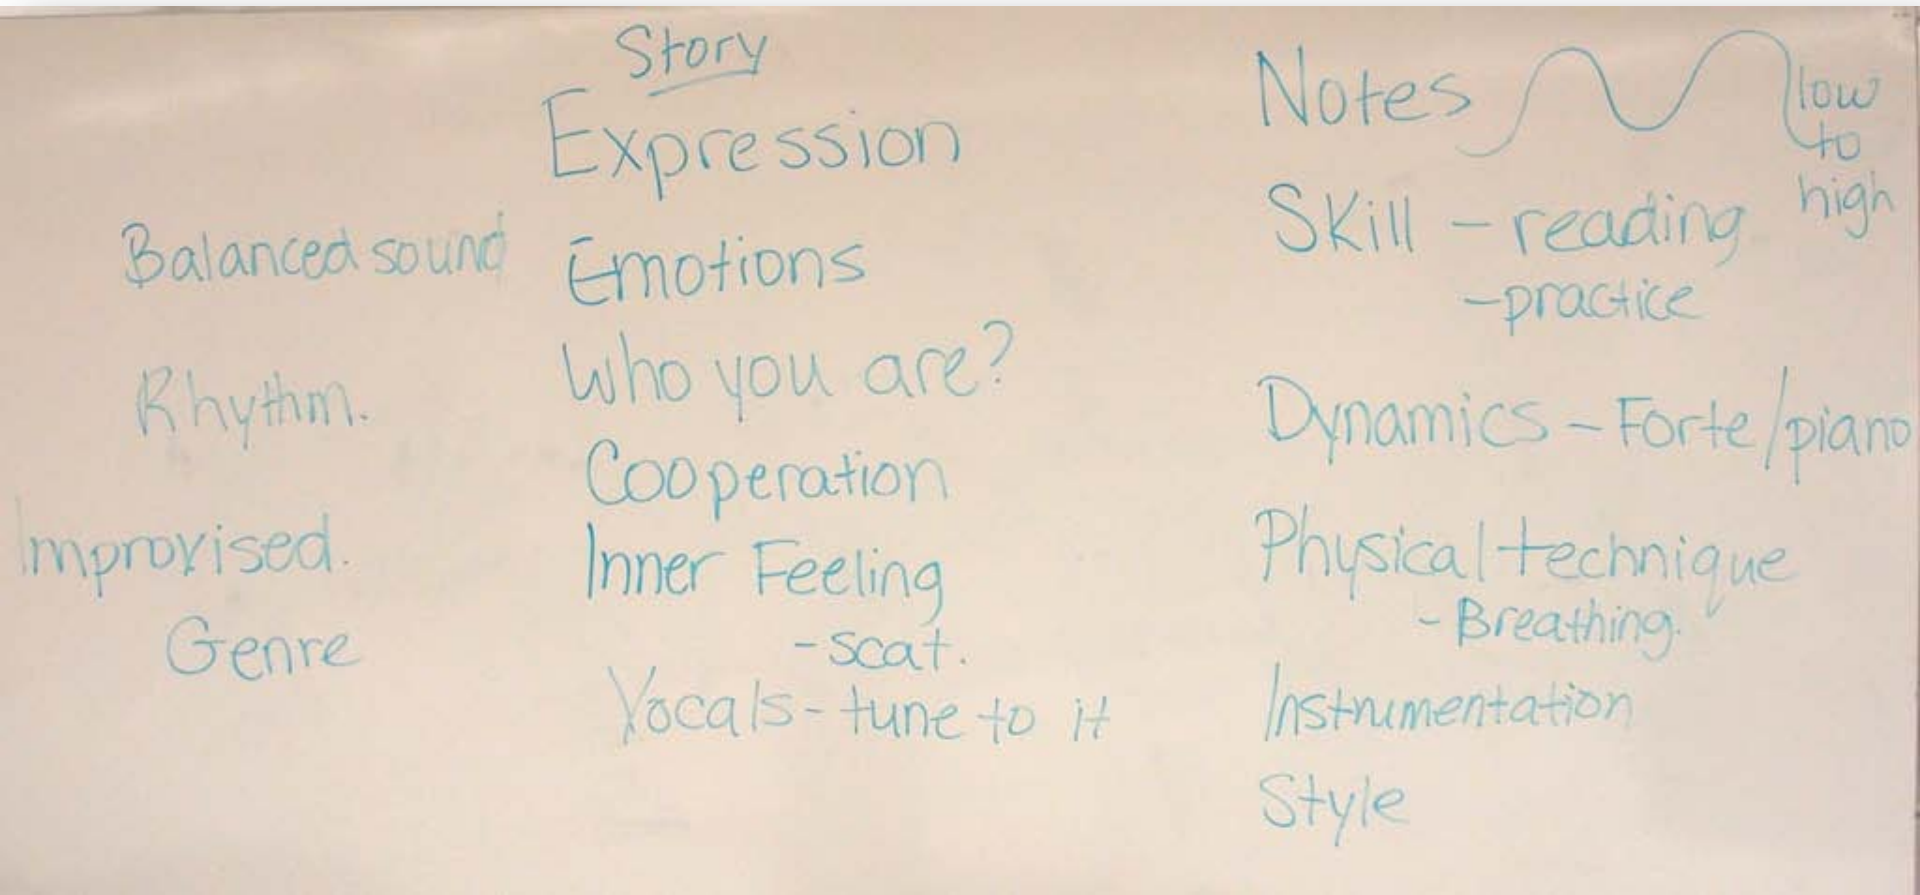 Balanced sound
Rhythm.
Improvised.
Genre
Story
Expression
Emotions
Who you are?
Cooperation
Inner Feeling
-scat.
Vocals - tune to it
Notes
low
to
high
Skill - reading
-practice
Dynamics - Forte/piano
Physical technique
- Breathing.
Instrumentation
Style